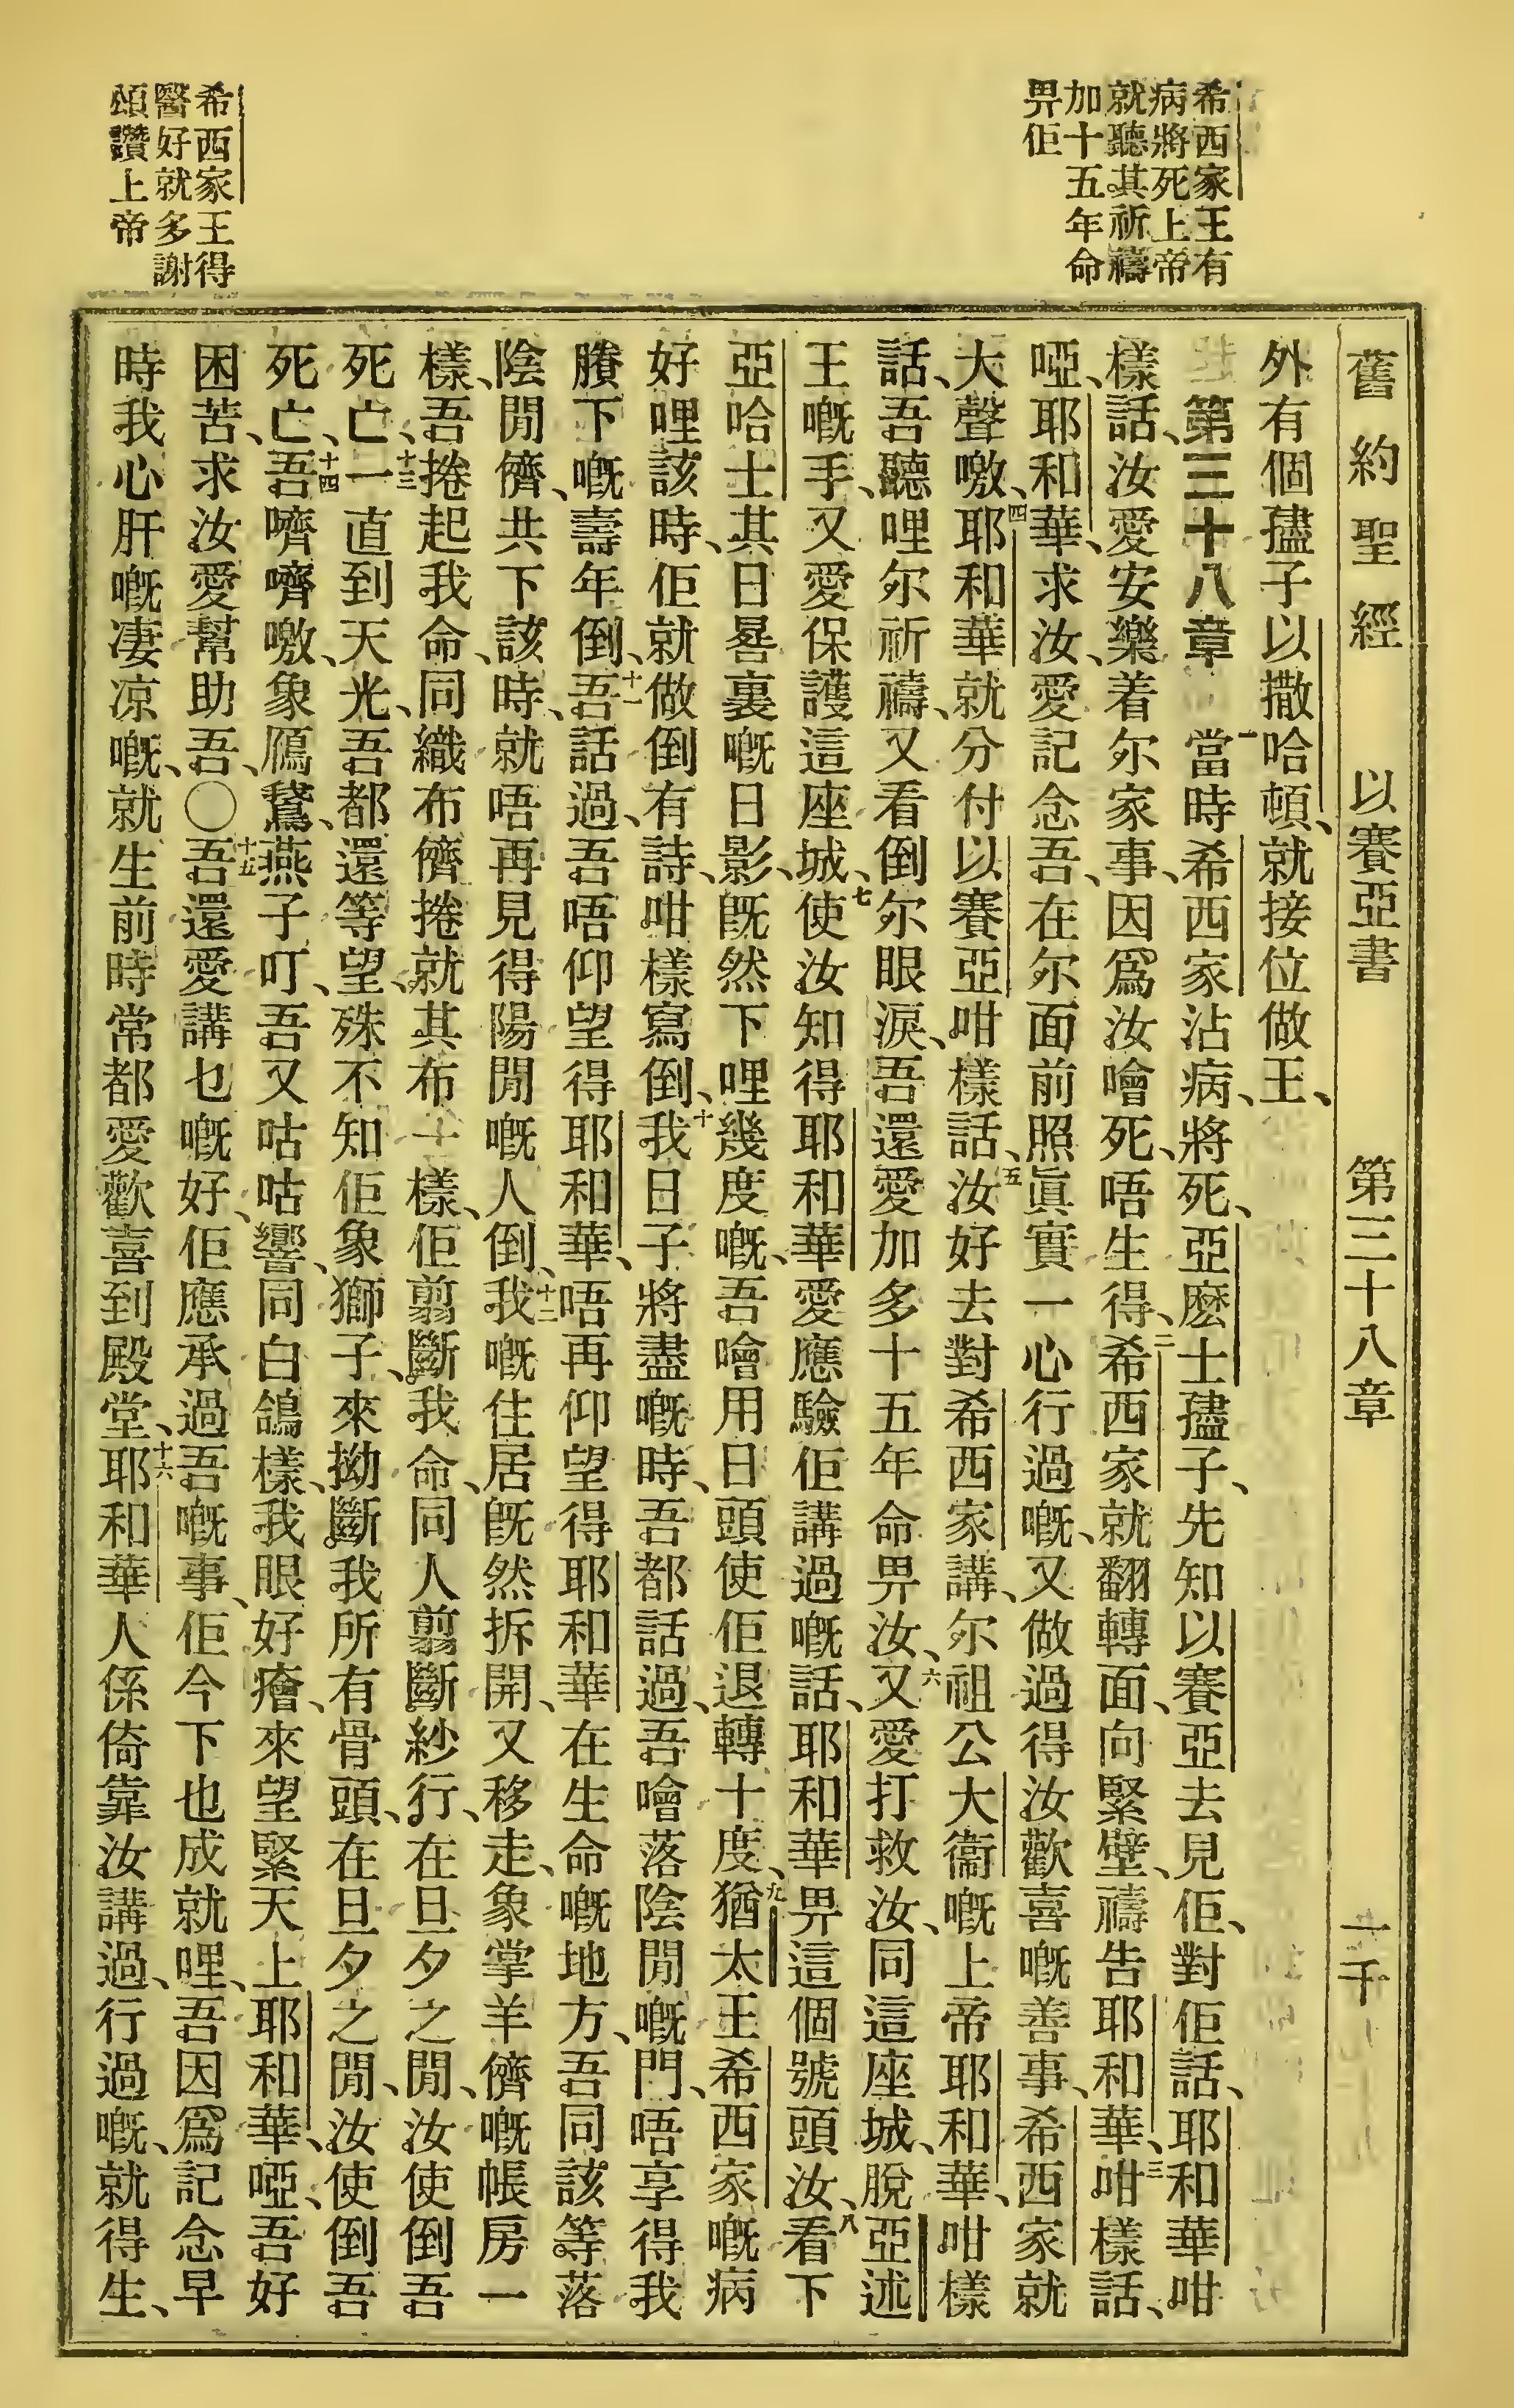 希西家王有
病將死上帝
就聽其祈禱
加十五年命
畀佢
希西家王得
醫好就多謝
頌讚上帝
舊約聖經 以賽亞書 第三十八章 一千
外有個孻子以撒哈頓、就接位做王、
第三十八章 一當時希西家沾病、將死、亞麽士孻子、先知以賽亞去見佢、對佢話、耶和華咁
樣話、汝愛安樂着尔家事、因爲汝噲死、唔生得、二希西家就翻轉面、向緊壁、禱告耶和華、三咁樣話、
啞、耶和華、求汝、愛記念吾、在尔面前照眞實一心行過嘅、又做過得汝歡喜嘅善事、希西家就
大聲噭、四耶和華就分付以賽亞咁樣話、五汝好去對希西家講、尔祖公大衞嘅上帝耶和華、咁樣
話、吾聽哩尔祈禱、又看倒尔眼淚、吾還愛加多十五年命畀汝、六又愛打救汝、同這座城、脫亞述
王嘅手、又愛保護這座城、七使汝知得耶和華愛應驗佢講過嘅話、耶和華畀這個號頭汝、八看下
亞哈士其日晷裏嘅日影、旣然下哩幾度嘅、吾噲用日頭使佢退轉十度、九猶太王希西家嘅病
好哩該時、佢就做倒有詩、咁樣寫倒、十我日子將盡嘅時、吾都話過、吾噲落陰間嘅門、唔享得我
賸下嘅壽年倒、十一吾話過、吾唔仰望得耶和華、唔再仰望得耶和華在生命嘅地方、吾同該等落
陰間儕、共下該時、就唔再見得陽間嘅人倒、十二我嘅住居旣然拆開、又移走、象掌羊儕嘅帳房一
樣、吾捲起我命、同織布儕捲就其布一樣、佢翦斷我命、同人翦斷紗行、在旦夕之間、汝使倒吾
死亡、十三一直到天光、吾都還等望、殊不知佢象獅子、來拗斷我所有骨頭、在旦夕之間、汝使倒吾
死亡、十四吾嚌嚌噭、象鴈鵞、燕子叮、吾又咕咕響、同白鴿樣、我眼好癐、來望緊天上耶和華、啞、吾好
困苦、求汝愛幫助吾、〇十五吾還愛講乜嘅好、佢應承過吾嘅事、佢今下也成就哩、吾因爲記念早
時我心肝嘅凄凉嘅、就生前時常都愛歡喜到殿堂、十六耶和華人係倚靠汝講過、行過嘅、就得生、